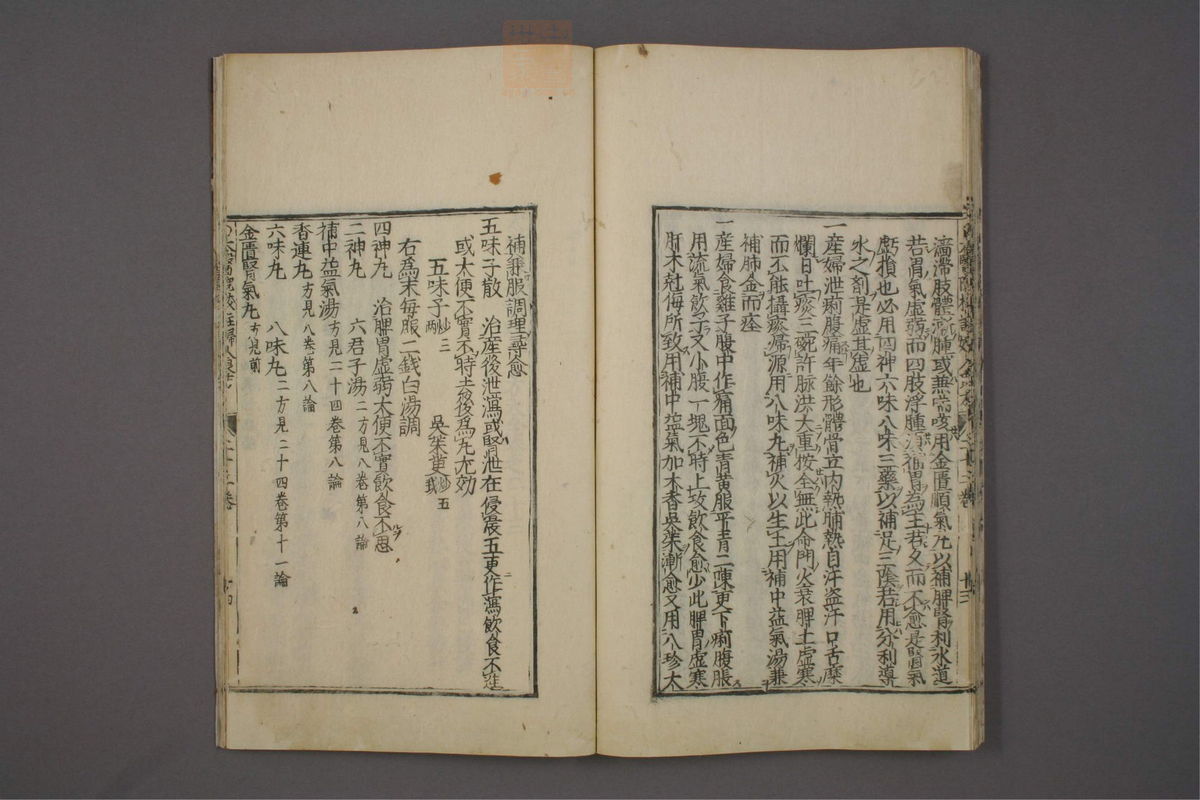 濇滯肢體浮腫或無喘咳用金匱順氣丸以補脾腎利水道
若胃氣虛弱而四肢浮腫須補胃為主若久而不愈是腎氣
虧損也必用四神六味八味三藥以補足三陰若用分利導
水之劑是虛其虛也
一產婦泄痢腹痛年餘形體骨立內熱晡熱自汗盜汗口舌糜
爛日吐痰三碗許脈洪大重按全無此命門火衰脾土虛寒
而不能攝痰歸源用八味丸補火以生土用補中益氣湯兼
補肺金而痊
一產婦食雞子腹中作痛面色青黃服平胃二陳更下痢腹脹
用流氣飲子又小腹一塊不時上攻飲食愈少此脾胃虛寒
肝木尅侮所致用補中益氣加木香吳茱漸愈又用八珍大
補兼服調理尋愈
五味子散 治產後泄瀉或腎泄在侵晨五更作瀉飲食不進
或大便不實不時去後為丸尤効
五味子炒三兩 吳茱萸炒五錢
右為末每服二錢白湯調
四神丸 治脾胃虛弱大便不實飲食不思
二神丸 六君子湯二方見八卷第八論
補中益氣湯方見二十四卷第八論
香連丸方見八卷第八論
六味丸 八味丸二方見二十四卷第十一論
金匱腎氣丸方見前
二十三卷